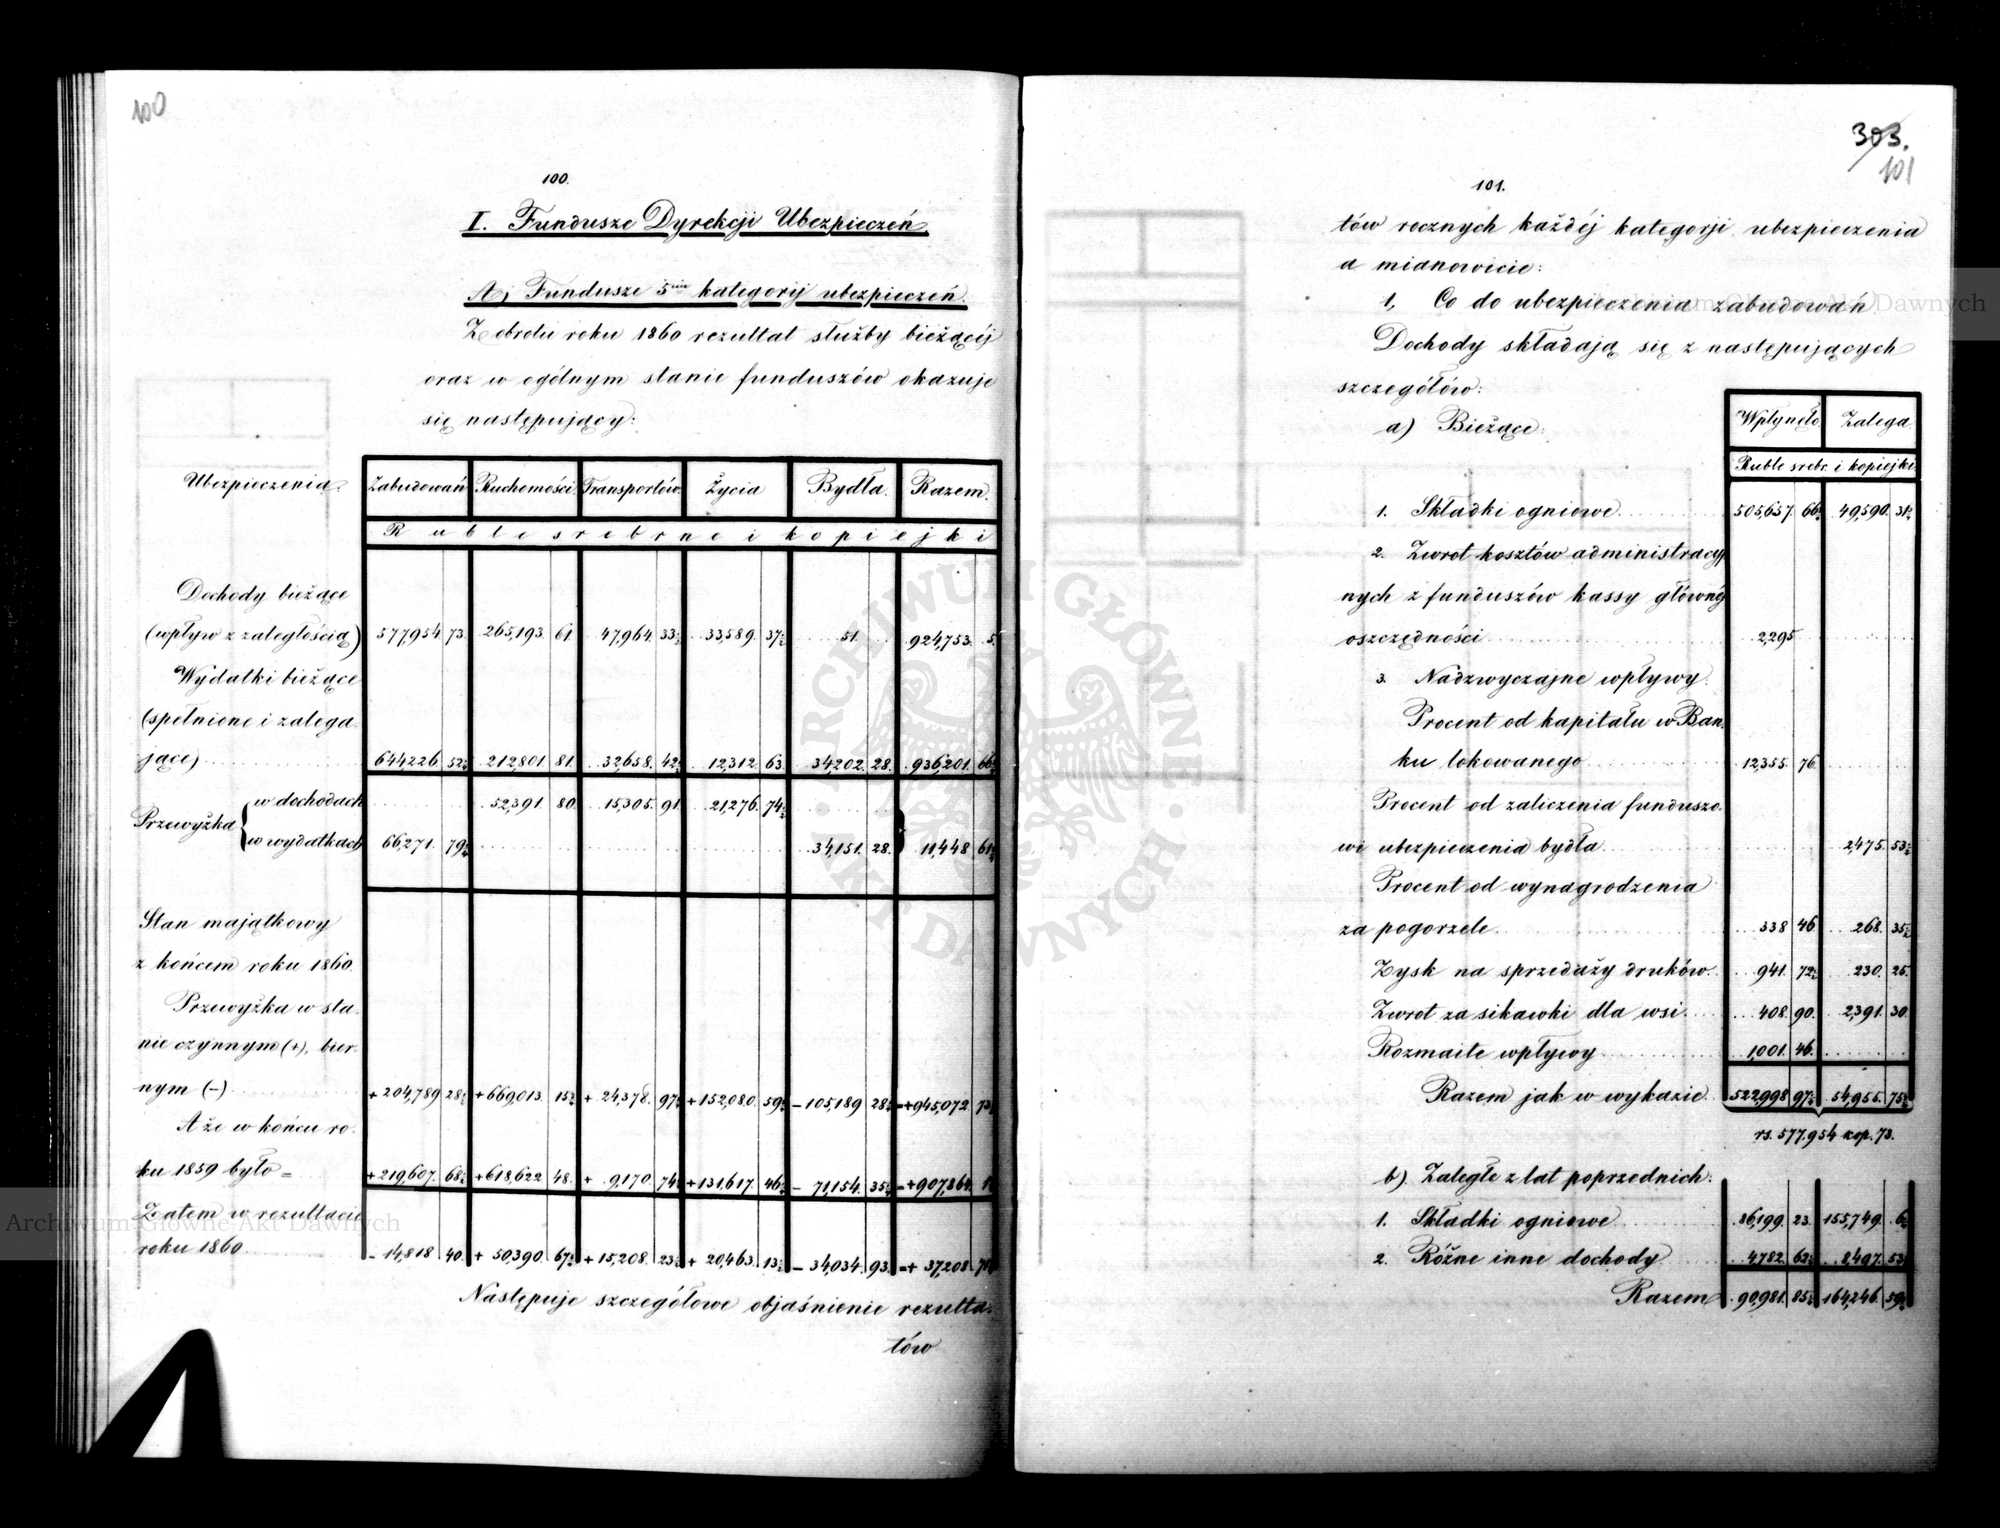 100
100.
I. Fundusze Dyrekcji Ubezpieczeń
A, Fundusze 5ciu kategorij ubezpieczeń.
Z obrotu roku 1860 rezultat służby bieżącéj
oraz w ogólnym stanie funduszów okazuje
się następujący:
Ubezpieczenia. Zabudowań Ruchomości. Transportów. Życia Bydła. Razem.
Ruble srebrne i kopiejki
Dochody bieżące
(wpływ z zaległością) 577,954 73. 265,193. 61 47,964. 33½ 33,589. 37½ 51. 924,753. 5.
Wydatki bieżące
(spełnione i zalega
jące) 644,226. 52½ 212,801 81. 32,658. 42½ 12,312. 63. 34,202. 28. 936,201. 66½
Przewyżka w dochodach 52,391. 80. 15,305. 91. 21,276. 74½
w wydatkach 66,271. 79½ 34,151. 28. 11,448 61½
Stan majątkowy
z końcem roku 1860.
Przewyżka w sta-
nie czynnym (+), bier-
nym (-) +204,789 28½ +669,013. 15½ + 24,378. 97½ +152,080. 59½ -105,189 28½ =+945,072.
A że w końcu ro-
ku 1859 było = +219,607. 68½ +618,622. 48. + 9,170. 74½ +131,617. 46½ - 71,154. 35½ =+907,864.
Zatem w rezultacie
roku 1860 - 14,818 40. + 50,390. 67½ +15,208. 23½ + 20,463. 13½ - 34,034. 93. =+ 37,208.
Następuje szczegółowe objaśnienie rezulta-
tów
303.
101
101.
tów rocznych każdéj kategorji ubezpieczenia
a mianowicie:
1, Co do ubezpieczenia zabudowań
Dochody składają się z następujących
szczegółów:
a) Bieżące:
Wpłynęło Zalega
Ruble srebr. i kopiejki
1. Składki ogniowe 505,657. 66½ 49,590. 31½
2. Zwrot kosztów administracyj
nych z funduszów kassy głównéj
oszczędności 2,295
3. Nadzwyczajne wpływy.
Procent od kapitału w Ban-
ku lokowanego 12,355. 76.
Procent od zaliczenia funduszo-
wi ubezpieczenia bydła 2,475. 53½
Procent od wynagrodzenia
za pogorzele 338 46 268. 35½
Zysk na sprzedaży druków 941. 72½ 230. 25.
Zwrot za sikawki dla wsi 408. 90. 2,391. 30.
Rozmaite wpływy 1,001. 46.
Razem jak w wykazie 522,998 97½ 54,955. 75½
rs. 577,954 kop. 73.
b) Zaległe z lat poprzednich:
1. Składki ogniowe 86,199. 23. 155,749. 6½
2. Różne inne dochody 4,782. 62½ 8,497. 53
Razem 90,981. 85½ 164,246. 59½
ARCHIWUM GŁÓWNE AKT DAWNYCH
Archiwum Główne Akt Dawnych
Archiwum Główne Akt Dawnych